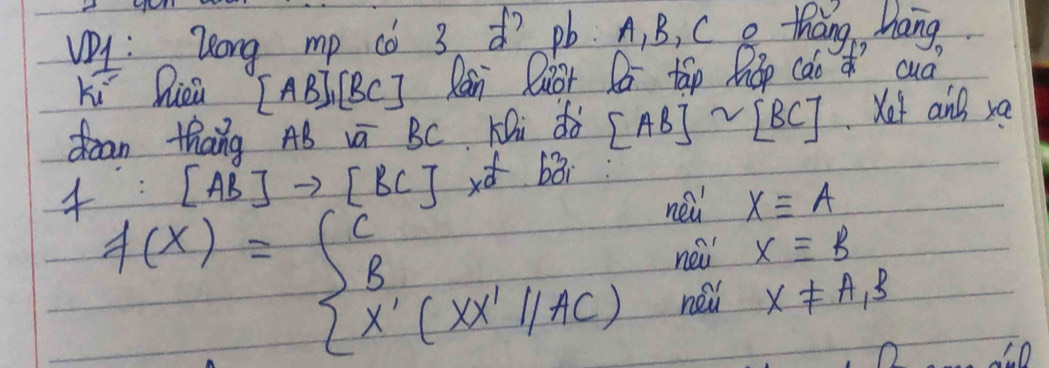 VD1: Trong mp có 3 đ' pb : A, B, C o thẳng hàng.
Kí hiệu [AB], [BC] lần lượt là tập hợp các đ' của
đoạn thẳng AB và BC. Khi đó [AB] ~ [BC]. Xét ánh xạ
f : [AB] → [BC] xđ bởi :
f(X) = { C nếu X ≡ A
B nếu X ≡ B
X' (XX' // AC) nếu X ≠ A, B